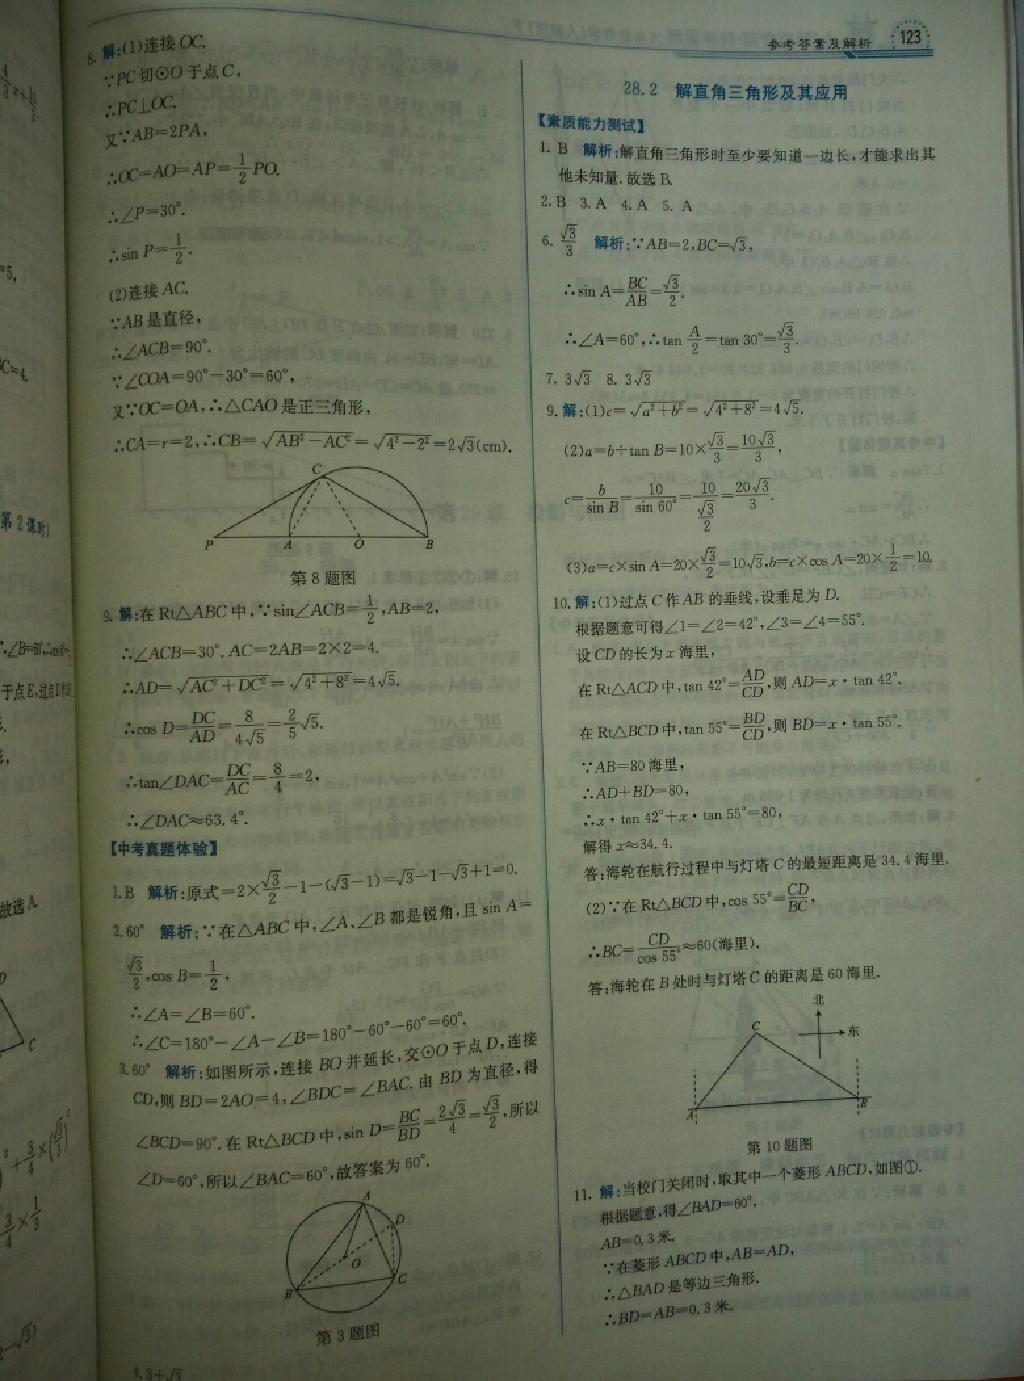 参考答案及解析 123
8. 解:(1)连接 OC.
∵PC 切⊙O 于点 C,
∴PC⊥OC.
又∵AB=2PA,
∴OC=AO=AP=1/2 PO.
∴∠P=30°.
∴sin P=1/2.
(2)连接 AC.
∵AB 是直径,
∴∠ACB=90°.
∵∠COA=90°-30°=60°,
又∵OC=OA,∴△CAO 是正三角形,
∴CA=r=2,∴CB=√(AB²-AC²)=√(4²-2²)=2√3(cm).
C
P A O B
第 8 题图
9. 解:在 Rt△ABC 中,∵sin∠ACB=1/2,AB=2,
∴∠ACB=30°. AC=2AB=2×2=4.
∴AD=√(AC²+DC²)=√(4²+8²)=4√5.
∴cos D=DC/AD=8/(4√5)=2/5 √5.
∴tan∠DAC=DC/AC=8/4=2,
∴∠DAC≈63.4°.
【中考真题体验】
1. B 解析:原式=2×√3/2-1-(√3-1)=√3-1-√3+1=0.
2. 60° 解析:∵在△ABC 中,∠A、∠B 都是锐角,且 sin A=
√3/2,cos B=1/2,
∴∠A=∠B=60°.
∴∠C=180°-∠A-∠B=180°-60°-60°=60°.
3. 60° 解析:如图所示,连接 BO 并延长,交⊙O 于点 D,连接
CD,则 BD=2AO=4,∠BDC=∠BAC. 由 BD 为直径,得
∠BCD=90°. 在 Rt△BCD 中,sin D=BC/BD=2√3/4=√3/2,所以
∠D=60°,所以∠BAC=60°,故答案为 60°.
A
D
O
B C
第 3 题图
28.2 解直角三角形及其应用
【素质能力测试】
1. B 解析:解直角三角形时至少要知道一边长,才能求出其
他未知量. 故选 B.
2. B 3. A 4. A 5. A
6. √3/3 解析:∵AB=2,BC=√3,
∴sin A=BC/AB=√3/2.
∴∠A=60°,∴tan A/2=tan 30°=√3/3.
7. 3√3 8. 3√3
9. 解:(1)c=√(a²+b²)=√(4²+8²)=4√5.
(2)a=b÷tan B=10×√3/3=10√3/3,
c=b/sin B=10/sin 60°=10/(√3/2)=20√3/3.
(3)a=c×sin A=20×√3/2=10√3,b=c×cos A=20×1/2=10.
10. 解:(1)过点 C 作 AB 的垂线,设垂足为 D.
根据题意可得∠1=∠2=42°,∠3=∠4=55°.
设 CD 的长为 x 海里,
在 Rt△ACD 中,tan 42°=AD/CD,则 AD=x·tan 42°.
在 Rt△BCD 中,tan 55°=BD/CD,则 BD=x·tan 55°.
∵AB=80 海里,
∴AD+BD=80,
∴x·tan 42°+x·tan 55°=80,
解得 x≈34.4.
答:海轮在航行过程中与灯塔 C 的最短距离是 34.4 海里.
(2)∵在 Rt△BCD 中,cos 55°=CD/BC,
∴BC=CD/cos 55°≈60(海里).
答:海轮在 B 处时与灯塔 C 的距离是 60 海里.
北
C 东
A B
第 10 题图
11. 解:当校门关闭时,取其中一个菱形 ABCD,如图①.
根据题意,得∠BAD=60°,
AB=0.3 米.
∵在菱形 ABCD 中,AB=AD,
∴△BAD 是等边三角形.
∴BD=AB=0.3 米.